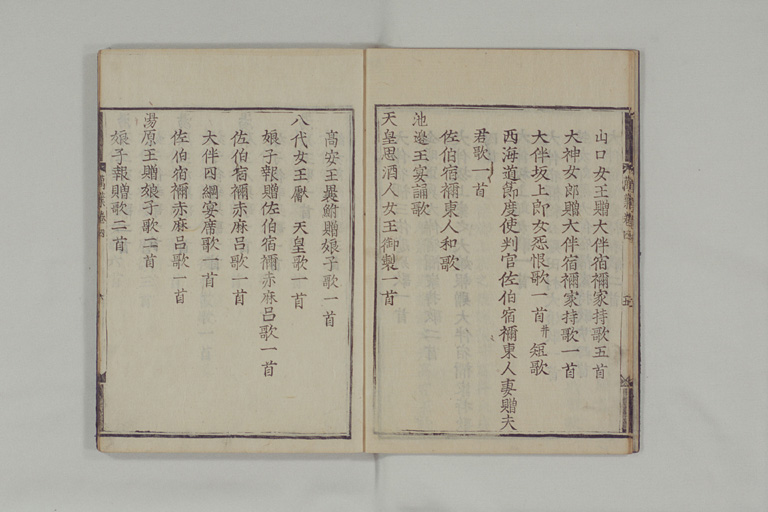 山口女王贈大伴宿禰家持歌五首
大神女郎贈大伴宿禰家持歌一首
大伴坂上郎女怨恨歌一首并短歌
西海道節度使判官佐伯宿禰東人妻贈夫
君歌一首
佐伯宿禰東人和歌
池邊王宴誦歌
天皇思酒人女王御製一首
高安王裹鮒贈娘子歌一首
八代女王獻 天皇歌一首
娘子報贈佐伯宿禰赤麻呂歌一首
佐伯宿禰赤麻呂歌一首
大伴四綱宴席歌一首
佐伯宿禰赤麻呂歌一首
湯原王贈娘子歌二首
娘子報贈歌二首